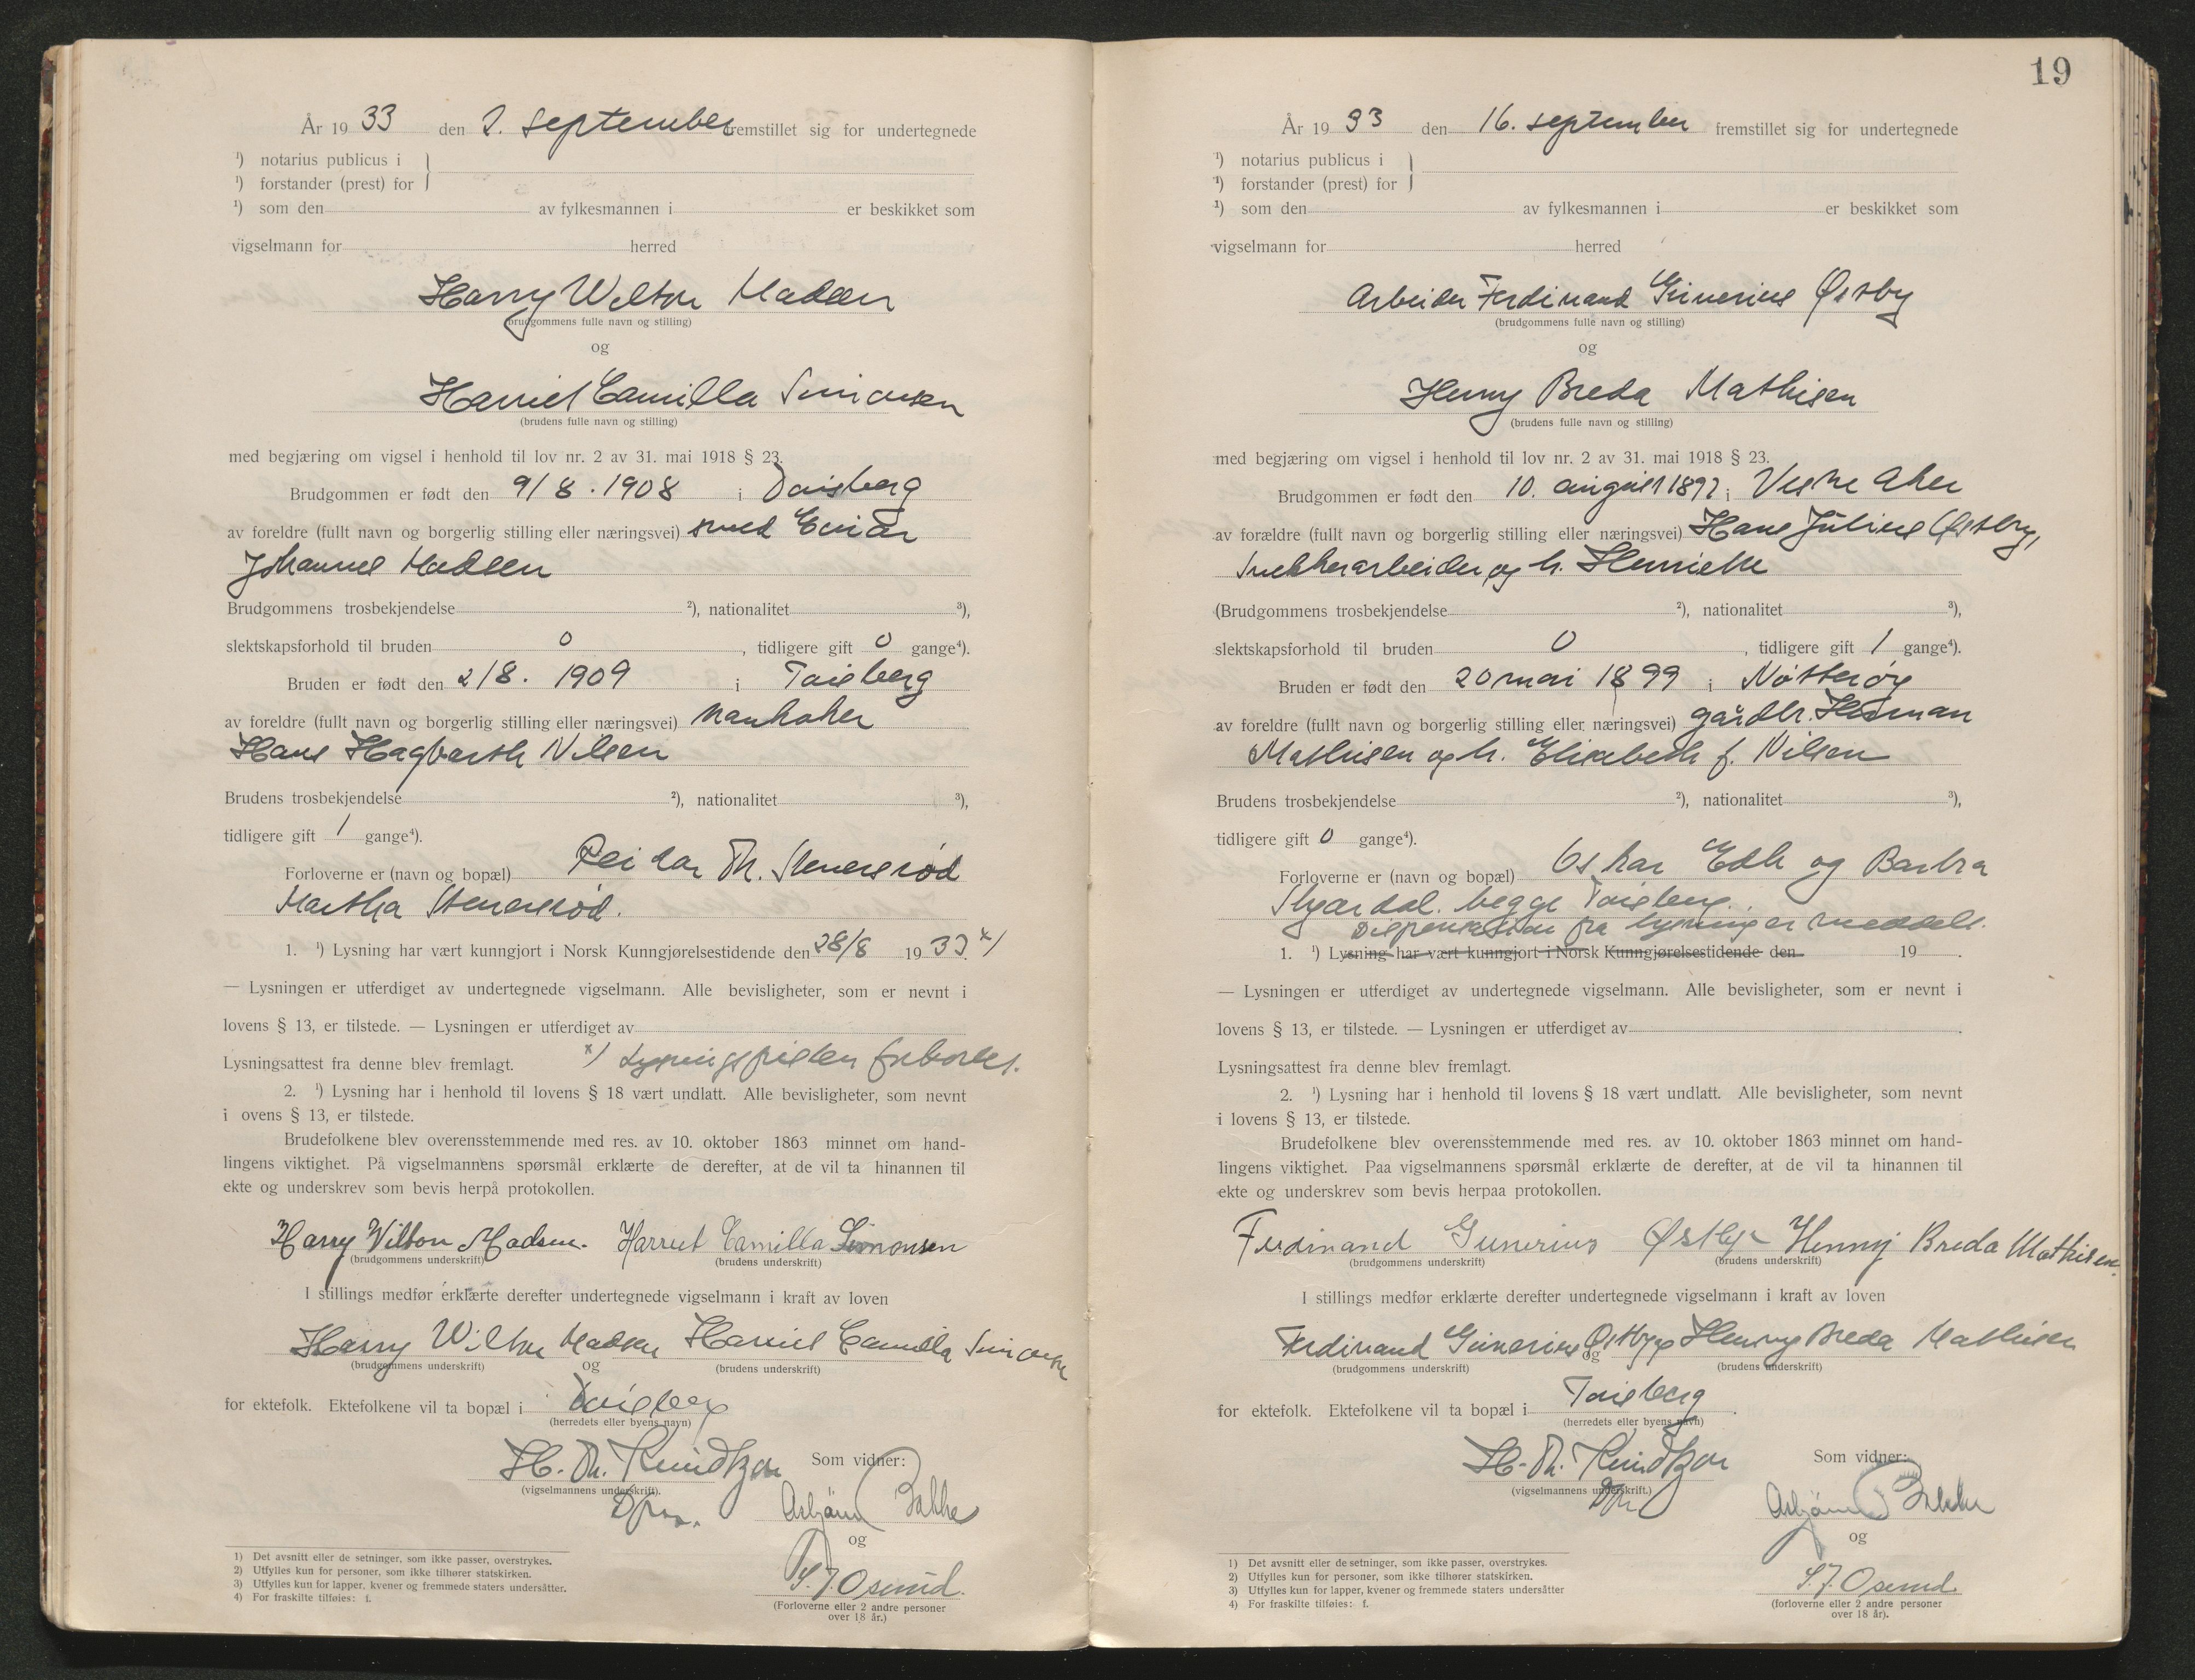 År 19 33 den 2. september fremstillet sig for undertegnede
¹) notarius publicus i
¹) forstander (prest) for
¹) som den av fylkesmannen i er beskikket som
vigselmann for herred
Harry Wilton Madsen
(brudgommens fulle navn og stilling)
og
Harriet Camilla Simonsen
(brudens fulle navn og stilling)
med begjæring om vigsel i henhold til lov nr. 2 av 31. mai 1918 § 23.
Brudgommen er født den 9/8. 1908 i Tønsberg
av foreldre (fullt navn og borgerlig stilling eller næringsvei) smed Einar
Johannes Madsen
Brudgommens trosbekjendelse ²), nationalitet ³),
slektskapsforhold til bruden 0, tidligere gift 0 gange⁴).
Bruden er født den 2/8. 1909 i Tønsberg
av foreldre (fullt navn og borgerlig stilling eller næringsvei)
Hans Hagbarth Nilsen
Brudens trosbekjendelse ²), nationalitet ³),
tidligere gift 1 gange⁴).
Forloverne er (navn og bopæl) Reidar Th. Stenersrød
Martha Stenersrød.
1. ¹) Lysning har vært kunngjort i Norsk Kunngjørelsestidende den 28/8 1933. x)
— Lysningen er utferdiget av undertegnede vigselmann. Alle bevisligheter, som er nevnt i
lovens § 13, er tilstede. — Lysningen er utferdiget av
Lysningsattest fra denne blev fremlagt. x) Lysningsfristen forkortet.
2. ¹) Lysning har i henhold til lovens § 18 vært undlatt. Alle bevisligheter, som nevnt
i ovens § 13, er tilstede.
Brudefolkene blev overensstemmende med res. av 10. oktober 1863 minnet om hand-
lingens viktighet. På vigselmannens spørsmål erklærte de derefter, at de vil ta hinannen til
ekte og underskrev som bevis herpå protokollen.
Harry Wilton Madsen. Harriet Camilla Simonsen
(brudgommens underskrift) (brudens underskrift)
I stillings medfør erklærte derefter undertegnede vigselmann i kraft av loven
Harry Wilton Madsen Harriet Camilla Simonsen
(brudgommens underskrift) og (brudens underskrift)
for ektefolk. Ektefolkene vil ta bopæl i Tønsberg
(herredets eller byens navn)
H. Th. Knudtzon Som vidner:
(vigselmannens underskrift).
Asbjørn Bakke
og
S. J. Osmund.
(Forloverne eller 2 andre personer
over 18 år.)
1) Det avsnitt eller de setninger, som ikke passer, overstrykes.
2) Utfylles kun for personer, som ikke tilhører statskirken.
3) Utfylles kun for lapper, kvener og fremmede staters undersåtter.
4) For fraskilte tilføies: f.
19
År 19 33 den 16. september fremstillet sig for undertegnede
¹) notarius publicus i
¹) forstander (prest) for
¹) som den av fylkesmannen i er beskikket som
vigselmann for herred
Arbeider Ferdinand Gunerius Østby
(brudgommens fulle navn og stilling)
og
Henny Breda Mathisen
(brudens fulle navn og stilling)
med begjæring om vigsel i henhold til lov nr. 2 av 31. mai 1918 § 23.
Brudgommen er født den 10. august 1892 i Vestre Aker
av forældre (fullt navn og borgerlig stilling eller næringsvei) Hans Julius Østby,
Snekkerarbeider og h. Henriette
(Brudgommens trosbekjendelse ²), nationalitet ³),
slektskapsforhold til bruden 0, tidligere gift 1 gange⁴).
Bruden er født den 20 mai 1899 i Nøtterøy
av foreldre (fullt navn og borgerlig stilling eller næringsvei) gårdbr. Herman
Mathisen og h. Elisabeth f. Nilsen
Brudens trosbekjendelse ²), nationalitet ³),
tidligere gift 0 gange⁴).
Forloverne er (navn og bopæl) Oskar Edh og Barbra
Skjærdal. begge Tønsberg.
Dispensation fra lysning er meddelt.
1. ¹) Lysning har vært kunngjort i Norsk Kunngjørelsestidende den 19 .
— Lysningen er utferdiget av undertegnede vigselmann. Alle bevisligheter, som er nevnt i
lovens § 13, er tilstede. — Lysningen er utferdiget av
Lysningsattest fra denne blev fremlagt.
2. ¹) Lysning har i henhold til lovens § 18 vært undlatt. Alle bevisligheter, som nevnt
i lovens § 13, er tilstede.
Brudefolkene blev overensstemmende med res. av 10. oktober 1863 minnet om hand-
lingens viktighet. Paa vigselmannens spørsmål erklærte de derefter, at de vil ta hinannen til
ekte og underskrev som bevis herpaa protokollen.
Ferdinand Gunerius Østby Henny Breda Mathisen.
(brudgommens underskrift) (brudens underskrift)
I stillings medfør erklærte derefter undertegnede vigselmann i kraft av loven
Ferdinand Gunerius Østby og Henny Breda Mathisen
(brudgommens underskrift) (brudens underskrift)
for ektefolk. Ektefolkene vil ta bopæl i Tønsberg.
(herredets eller byens navn)
H. Th. Knudtzon Som vidner:
(vigselmannens underskrift.)
Asbjørn Bakke
og
S. J. Osmund.
(forloverne eller 2 andre personer
over 18 år).
1) Det avsnitt eller de setninger, som ikke passer, overstrykes.
2) Utfylles kun for personer, som ikke tilhører statskirken.
3) Utfylles kun for lapper, kvener og fremmede staters undersåtter
4) For fraskilte tilføies: f.